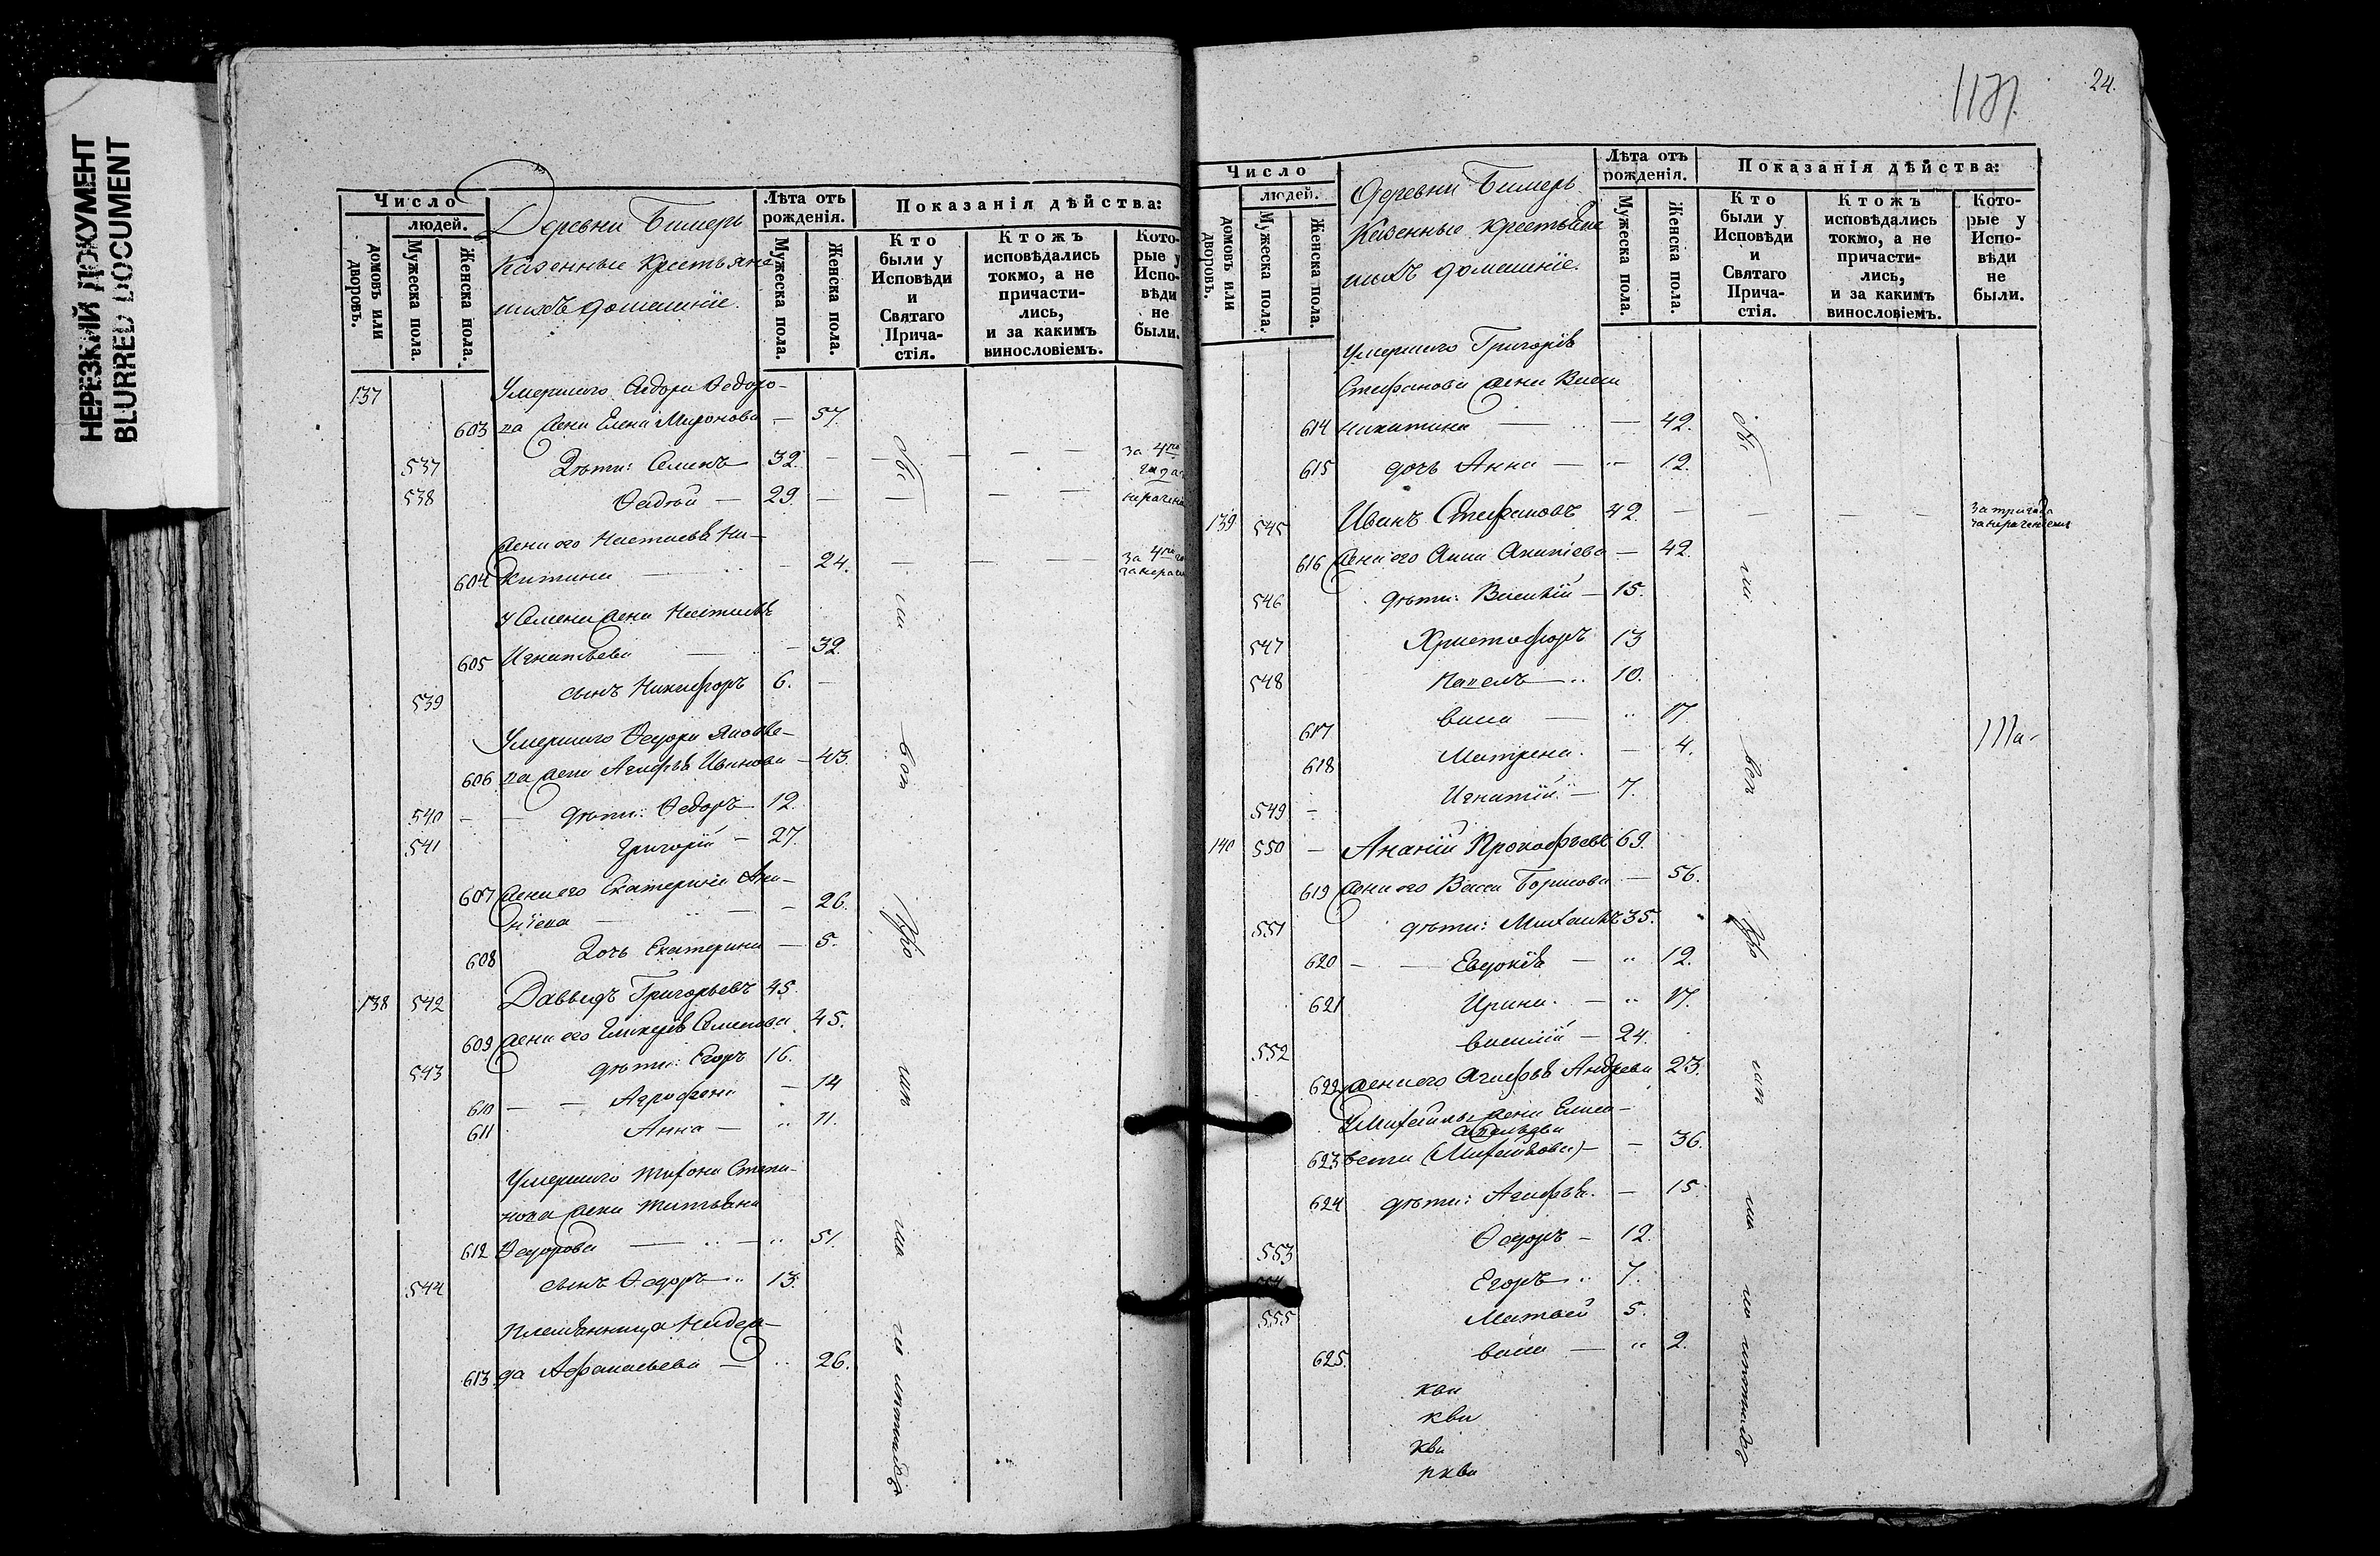 НЕРЕЗКИЙ ДОКУМЕНТ
BLURRED DOCUMENT
Число
людей.
домовъ или дворовъ.
Мужеска пола.
Женска пола.
Деревни Бимерь
Казенные крестьяне
ихъ домашніе.
Лѣта отъ рожденія.
Мужеска пола.
Женска пола.
Показанія дѣйства:
Кто были у Исповѣди и Святаго Причастія.
Ктожъ исповѣдались токмо, а не причастились, и за какимъ винословіемъ.
Которые у Исповѣди не были.
137 Умершаго Федора Федоро-
603 ва жена Елена Миронова — 57.
537 Дѣти: Семенъ 32.
538 29.
жена его Настасья Ни-
604 китина 24.
У Семена жена Настасья
605 Игнатьева — 32.
539 сынъ Никифоръ 6.
Умершаго Федора Яковле-
606 ва жена Агафья Иванова — 43.
540 дѣти: Федоръ 12.
541 Григорій — 27.
607 жена его Екатерина Ана-
ніева — 26.
608 Дочь Екатерина — 5.
138 542 Давыдъ Григорьевъ 45.
609 жена его Гликерія Семенова 45.
543 дѣти: Егоръ 16.
610 Агрофена — 14
611 Анна — 11.
Умершаго Тихона Степа-
нова жена Татьяна
612 Федорова — 51.
544 сынъ Федоръ 13.
Племянница Надеж-
613 да Афанасьева — 26.
24.
Число
людей.
домовъ или дворовъ.
Мужеска пола.
Женска пола.
Деревни Бимерь
Казенные крестьяне
ихъ домашніе.
Лѣта отъ рожденія.
Мужеска пола.
Женска пола.
Показанія дѣйства:
Кто были у Исповѣди и Святаго Причастія.
Ктожъ исповѣдались токмо, а не причастились, и за какимъ винословіемъ.
Которые у Исповѣди не были.
Умершаго Григорія
Стефанова жена Васса
614 Никитина — 42.
615 дочь Анна — 12.
139 545 Иванъ Стефановъ 42.
616 жена его Анна — 42.
546 дѣти: Василій — 15.
547 Христофоръ 13
548 Павелъ 10.
617 Васса — 17.
618 Матрена — 4.
549 Игнатій — 7.
140 550 Ананій Прокофьевъ 69.
619 жена его Васса Борисова — 56.
551 дѣти: Михаилъ 35.
620 Евдокія — 12.
621 Ирина — 17.
552 Василій — 24.
622 жена его Агафья Андреева 23.
У Михаила жена Елиса-
623 вета (Михайлова) — 36.
624 дѣти: Агафья — 15.
553 Федоръ — 12.
554 Егоръ 7.
555 Матвей 5.
625. Васса — 2.